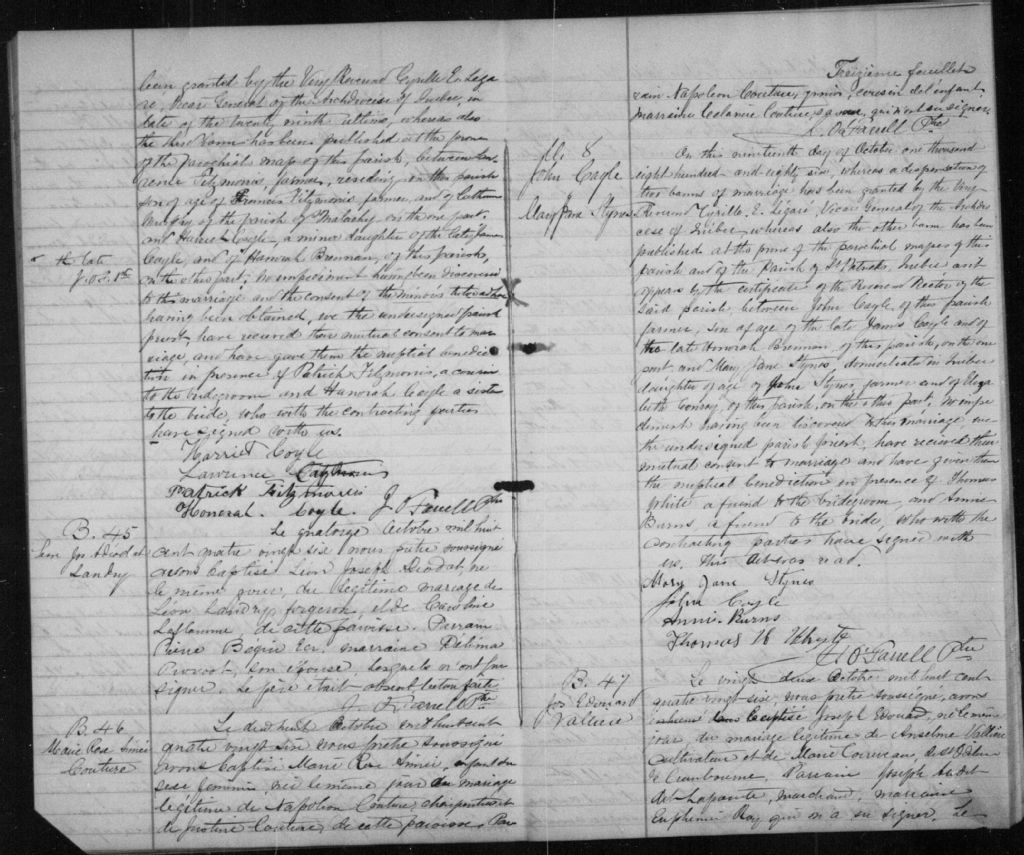 been granted by the Very Reverend Cyrille E. Lega
re, Vicar General of the Archdiocese of Quebec, in
date of the twenty ninth ultimo, whereas also
the third bann has been published at the prone
of the parochial mass of this parish, between Law
rence Fitzmorris, farmer, residing in this parish
son of age of Francis Fitzmorris, farmer, and of Catherine
Murphy of the parish of St Malachy on the one part,
and Harriet Coyle, a minor daughter of the late James
Coyle, and of Hanorah Brennan, of this parish,
the late
J. O'F. Ptr
on the other part; no impediment having been discovered
to this marriage and the consent of the minor's tutor ad hoc
having been obtained, we the undersigned parish
priest have received their mutual consent to mar
riage, and have gave them the nuptial benedic
tion in presence of Patrick Fitzmorris, a cousin
to the bridegroom and Hanorah Coyle a sister
to the bride, who with the contracting parties
have signed with us.
Harriet Coyle
Lawrence
Patrick Fitzmorris
Honorah Coyle J. O'Farrell Ptre
B. 45
Leon Jos. Adeodat
Landry
Le quatorze Octobre mil huit
cent quatre vingt six nous prêtre soussigné
avons baptisé Léon Joseph Déodat, né
le même jour, du légitime mariage de
Léon Landry, forgeron, et de Caroline
Laflamme de cette paroisse. Parrain
Pierre Begin, marraine Délima
Provost, son épouse, lesquels n'ont su
signer. Le père était absent. Lecture faite
J. O'Farrell Ptre
B. 46
Marie Rose Aimée
Couture
Le dix huit Octobre mil huit cent
quatre vingt six nous prêtre soussigné
avons baptisé Marie Rose Aimée, enfant du
sexe féminin, née le même jour du mariage
légitime de Napoléon Couture, charpentier et
de Justine Couture de cette paroisse. Par
Treizième feuillet
rain Napoléon Couture, junior, cousin de l'enfant
marraine Célanire Couture, sa soeur, qui n'ont su signer.
J. O'Farrell Ptre
M. 8
John Coyle
Mary Jane Stynes
On this nineteenth day of October one thousand
eight hundred and eighty six, whereas a dispensation of
two banns of marriage has been granted by the Very
Reverend Cyrille E. Légaré Vicar General of the Archdio
cese of Quebec, whereas also the other bann has been
published at the prone of the parochial masses of this
parish and of the Parish of St Patrick's, Quebec as it
appears by the certificate of the Reverend Rector of the
said parish, between John Coyle, of this parish
farmer, son of age of the late James Coyle and of
the late Honorah Brennan, of this parish, on the one
part, and Mary Jane Stynes, domiciliated in Quebec
daughter of age of John Stynes, farmer and of Eliza
beth Conray, of this parish, on the other part; no impe
diment having been discovered to this marriage, we
the undersigned parish priest, have received their
mutual consent to marriage and have given them
the nuptial benediction in presence of Thomas
White a friend to the bridegroom and Annie
Burns, a friend to the bride, who with the
contracting parties have signed with
us. This act was read.
Mary Jane Stynes
John Coyle
Annie Burns
Thomas H Whyte
J. O'Farrell Ptre
B. 47
Jos Edouard
Vallière
Le vingt deux Octobre mil huit cent
quatre vingt six, nous prêtre soussigné, avons
baptisé Joseph Edouard, né le même
jour du mariage légitime de Anselme Vallière
cultivateur et de Marie Corriveau, de St Odilon
de Cranbourne, Parrain Joseph
Lapointe, marchand, marraine
Euphémie Roy qui n'a su signer. Le